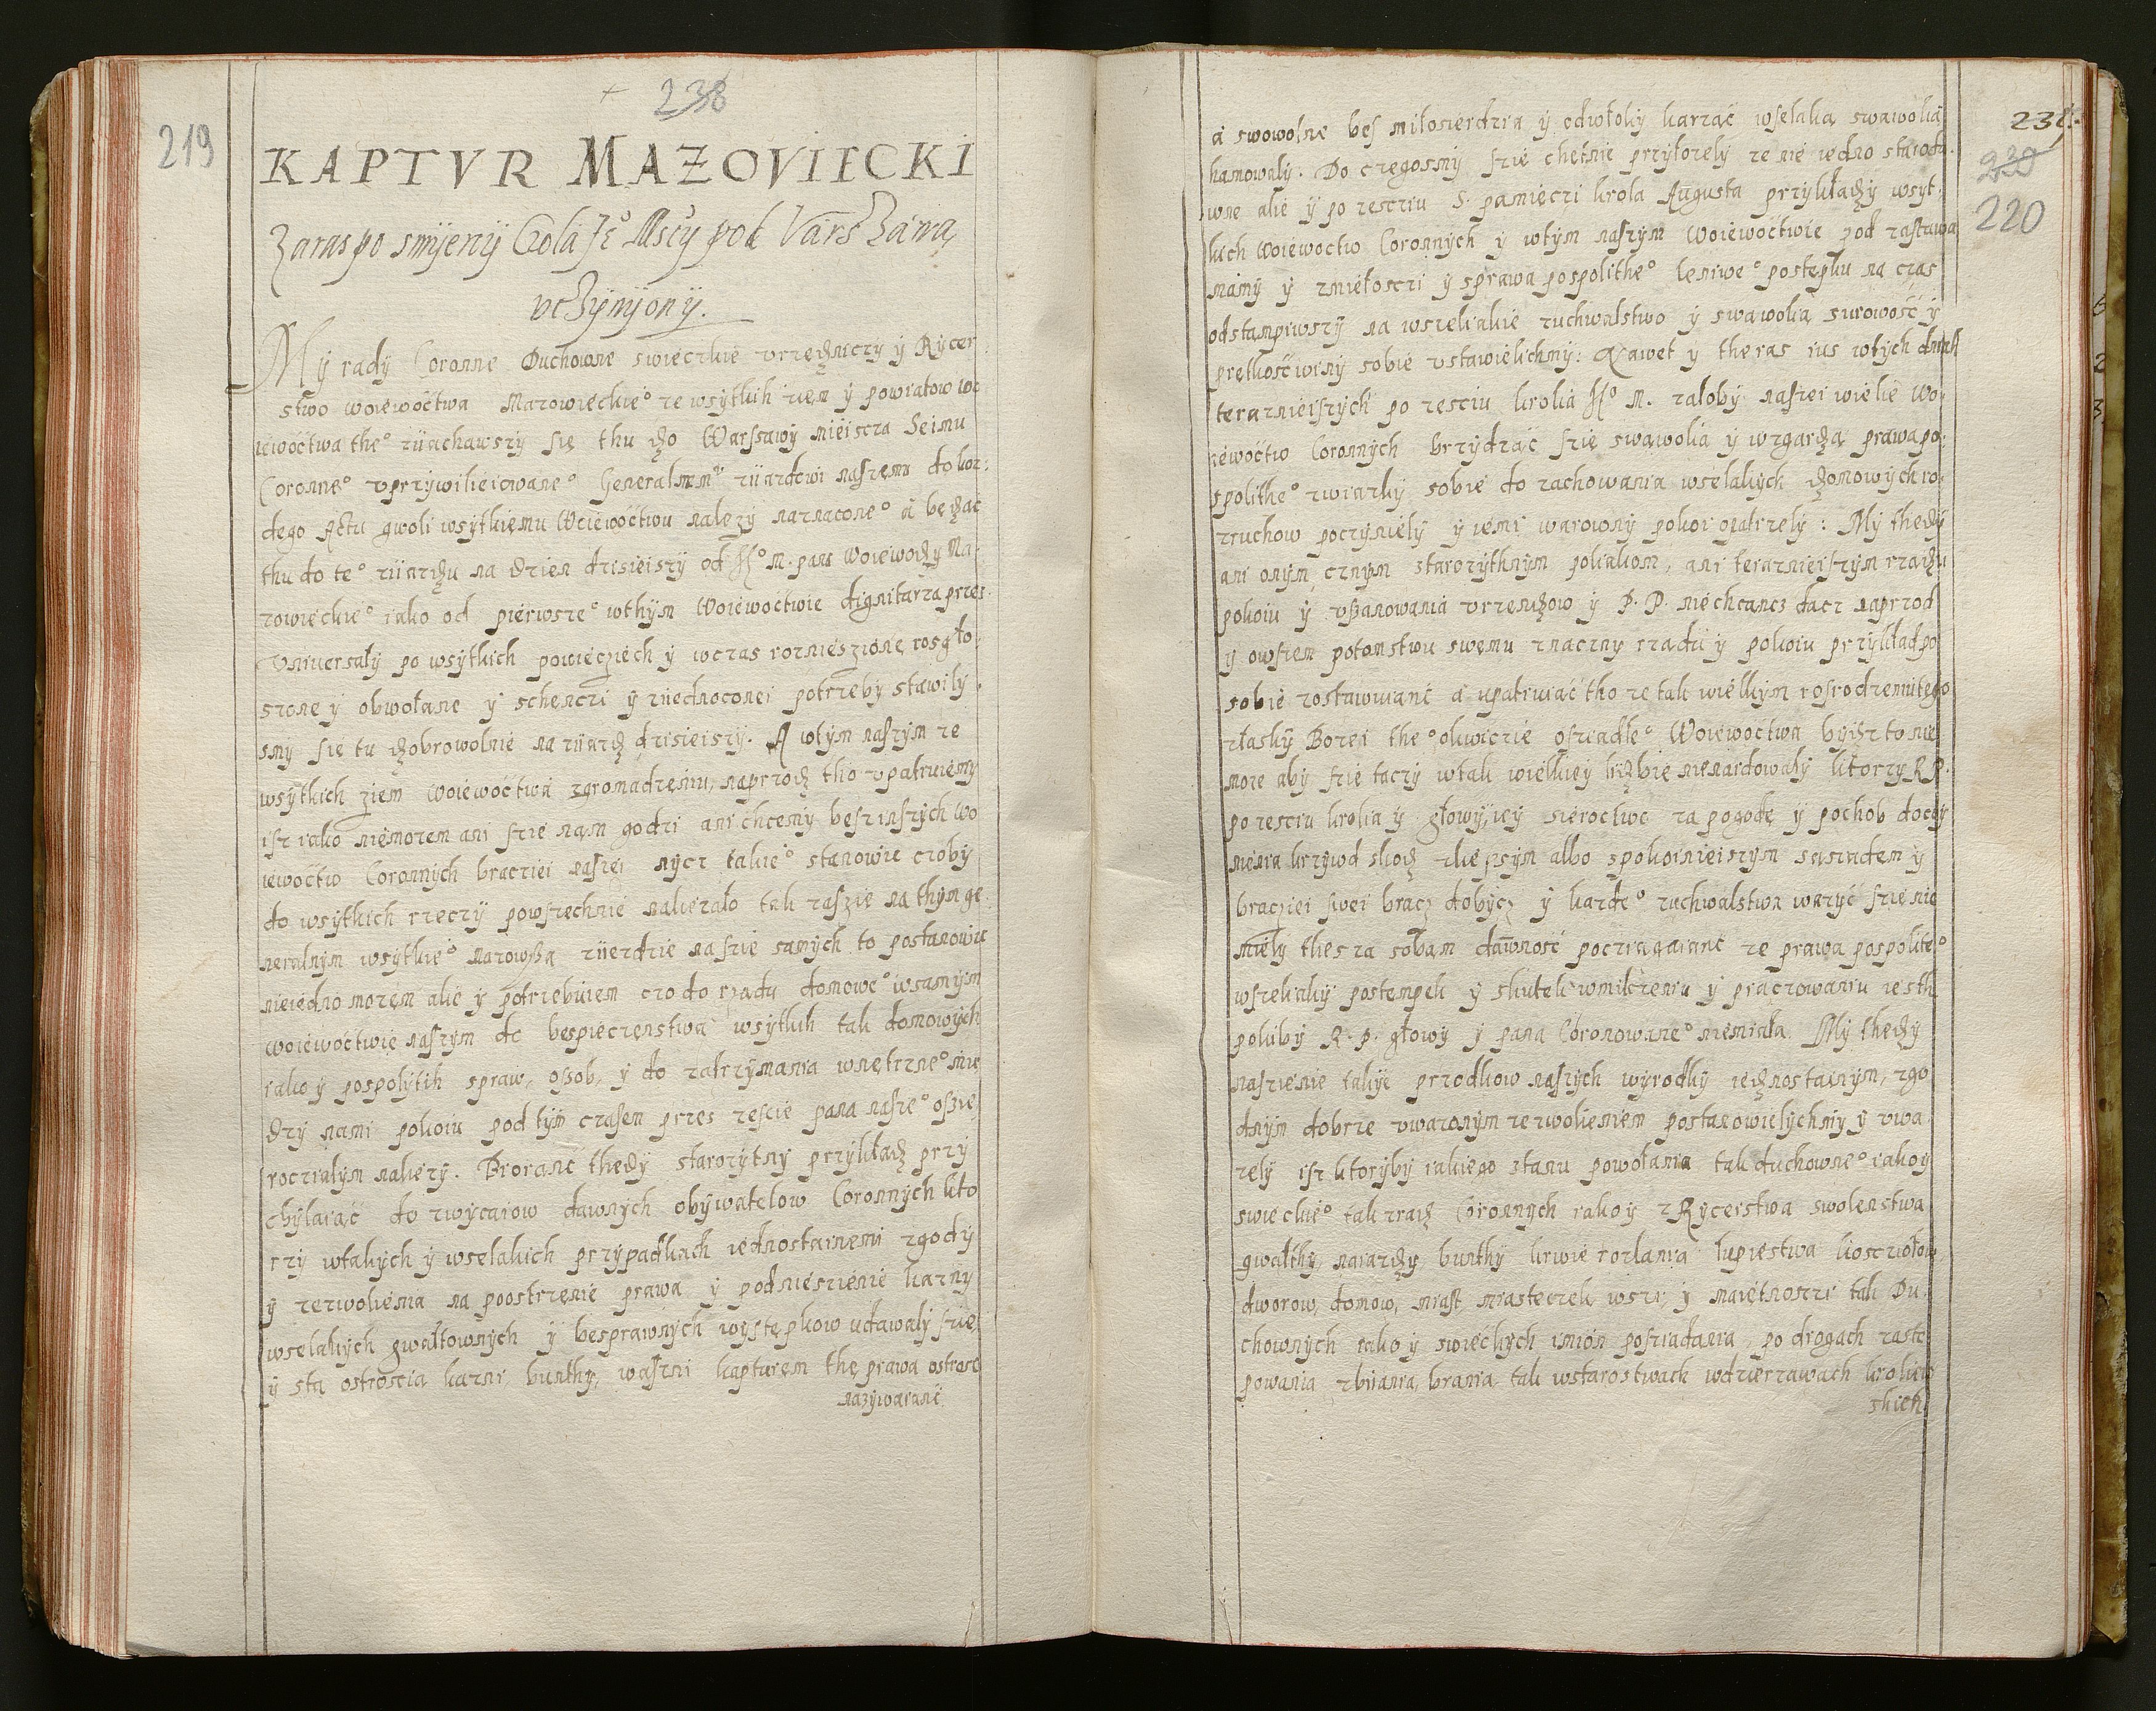 238
219
KAPTVR MAZOVIECKI
Zaras po smÿerÿ Crola Je° Mscÿ pod Varszawą
vczÿnÿonÿ.
Mÿ radÿ Coronne Duchowne swieczkie vrzędniczÿ ÿ Rÿcer
stwo woiewoctwa Mazowieckie° ze wsÿtkih ziem ÿ powiatow wo
iewoctwa the° ziiachawszÿ się thu do Warssawÿ mieiscza Seimu
Coronne° vprzÿwilieiowane° Generalnemu ziiazdowi naszemu do kaz:
dego Actu gwoli wsÿtkiemu Woiewoctwu nalezÿ naznaczone° a będąc
thu do te° ziiazdu na dzien dzisieiszÿ od J° M. pana Woiewodÿ Ma
zowieckie° iako od pierwsze° wthÿm Woiewoctwie dignitarza przez
Vniversalÿ po wsÿtkich powieczech ÿ wczas roznieszione rosgło
szone ÿ obwołane ÿ schenczi ÿ ziednoconei potrzebÿ stawilÿ
smÿ się tu dobrowolnie na ziiazd dzisieiszÿ. A wtÿm naszÿm ze
wsÿtkich ziem woiewoctwa zgromadzeniu, naprzod tho vpatruiemÿ
isz iako niemozem ani szie nam godzi ani chcemÿ bes inszÿch wo
iewoctw Coronnÿch bracziei naszei nÿcz takie° stanowic czobÿ
do wsÿtkich rzeczÿ powszechnie nalezało tak raszie na thÿm ge
neralnÿm wsÿtkie° Mazowsza ziiezdzie na szie samÿch to postanowic
nieiedno mozem alie ÿ potrzebuiem czo do rządu domowe° wsamÿm
woiewoctwie naszÿm do bespieczenstwa wsÿtkih tak domowÿch
iako ÿ pospolÿtih spraw, ossob, ÿ do zatrzÿmania wnętrzne° mie
dzÿ nami pokoiu pod tÿm czasem przes zescie pana nasze° oszie
roczialÿm nalezÿ. Biorąnc thedÿ starozÿtnÿ przÿkład przÿ
chÿlaiąc do zwÿcaiow dawnÿch obÿwatelow Coronnÿch kto
rzÿ wtakÿch ÿ wselakich przÿpadkach iednostainemi zgodÿ
ÿ zezwoliema na poostrzenie prawa ÿ podniesienie karnÿ
wselakÿch gwałtownÿch ÿ besprawnÿch wÿstępkow udawalÿ szie,
ÿ stą ostroscia karni, bunthÿ, waszni kapturem the prawa ostrosc
nazÿwaianc
a swowolne bes miłosierdzia ÿ odwłokÿ karząc wselaka swawolia
hamowalÿ. Do czegosmÿ szie chętnie przÿłozelÿ ze nie iedno staroda
wne alie ÿ po zescziu S. pamieczi krola Augusta przÿkładÿ wsÿt
kich Woiewoctw Coronnÿch ÿ wtÿm naszÿm woiewoctwie pod zastawa
mamÿ ÿ zmiełosczi ÿ sprawa pospolithe° leniwe° postępku na czas
odstampiwszÿ na wszeliakie zuchwalstwo ÿ swawolia surowość ÿ
prętkość winÿ sobie vstawielichmÿ: Nawet ÿ theras ius wtÿch dniah
teraznieiszÿch po zesciu krolia J° M. załobÿ naszei wielie Wo
iewoctw Coronnÿch brzÿdząc szie swawolią ÿ wzgardą prawa po
spolithe° zwiazkÿ sobie do zachowania wselakÿch domowÿch ro
zruchow poczÿnielÿ ÿ iemi warownÿ pokoi opatrzelÿ: Mÿ thedÿ
ani onÿm cznÿm starozÿthnÿm polakom, ani terazneiszÿm rzadu
pokoiu ÿ vszanowania vrzendow ÿ P. P. niechcancz dacz naprzod
ÿ owszem potomstwu swemu znacznÿ rzadu ÿ pokoiu przÿkład po
sobie zostawuianc a upatruiąc tho ze tak wielkÿm rosrodzennitego
złaskÿ Bozei the° okwicie osziadłe° Woiewoctwa bÿdz to nie
moze abÿ szie taczÿ wtak wielkieÿ liczbie nienaidowalÿ ktorzÿ R P.
po zesciu krolia ÿ głowÿ, ieÿ sieroctwo za pogodę ÿ pochob doczÿ
nienia krzÿwd skod zlieszÿm albo spokoinieiszÿm sasiadem ÿ
bracziei swei bracz dobÿcz ÿ karde° zuchwalstwa wazÿć szie nie
mielÿ thes za sobam dawność pocziagaianc ze prawa pospolite°
wszeliakÿ postempek ÿ skutek wmilczeniu ÿ praczowaniu iesth
pokibÿ R. P. głowÿ ÿ pana Coronowane° niemiała. Mÿ thedÿ
naszienie takÿe przodkow naszÿch wÿrodkÿ iednostainÿm, zgo
dnÿm dobrze vwazonÿm zezwolieniem postanowielÿchmÿ ÿ vwa
zelÿ isz ktorÿbÿ iakiego stanu powołania tak duchowne° iako ÿ
swieckie° tak zrad Coronnÿch iako ÿ z Rÿcerstwa swolenstwa
gwałthÿ, naiazdÿ, bunthÿ krwie rozlania łupiestwa kosciołow,
dworow, domow, miast, miasteczek, wszi, ÿ maiętnosczi tak Du
chownÿch iako ÿ swieckÿch imion posziadania, po drogach zaste
powania zbiiania, brania tak wstarostwach wdzierzawach kroliew
skich
238.
239
220